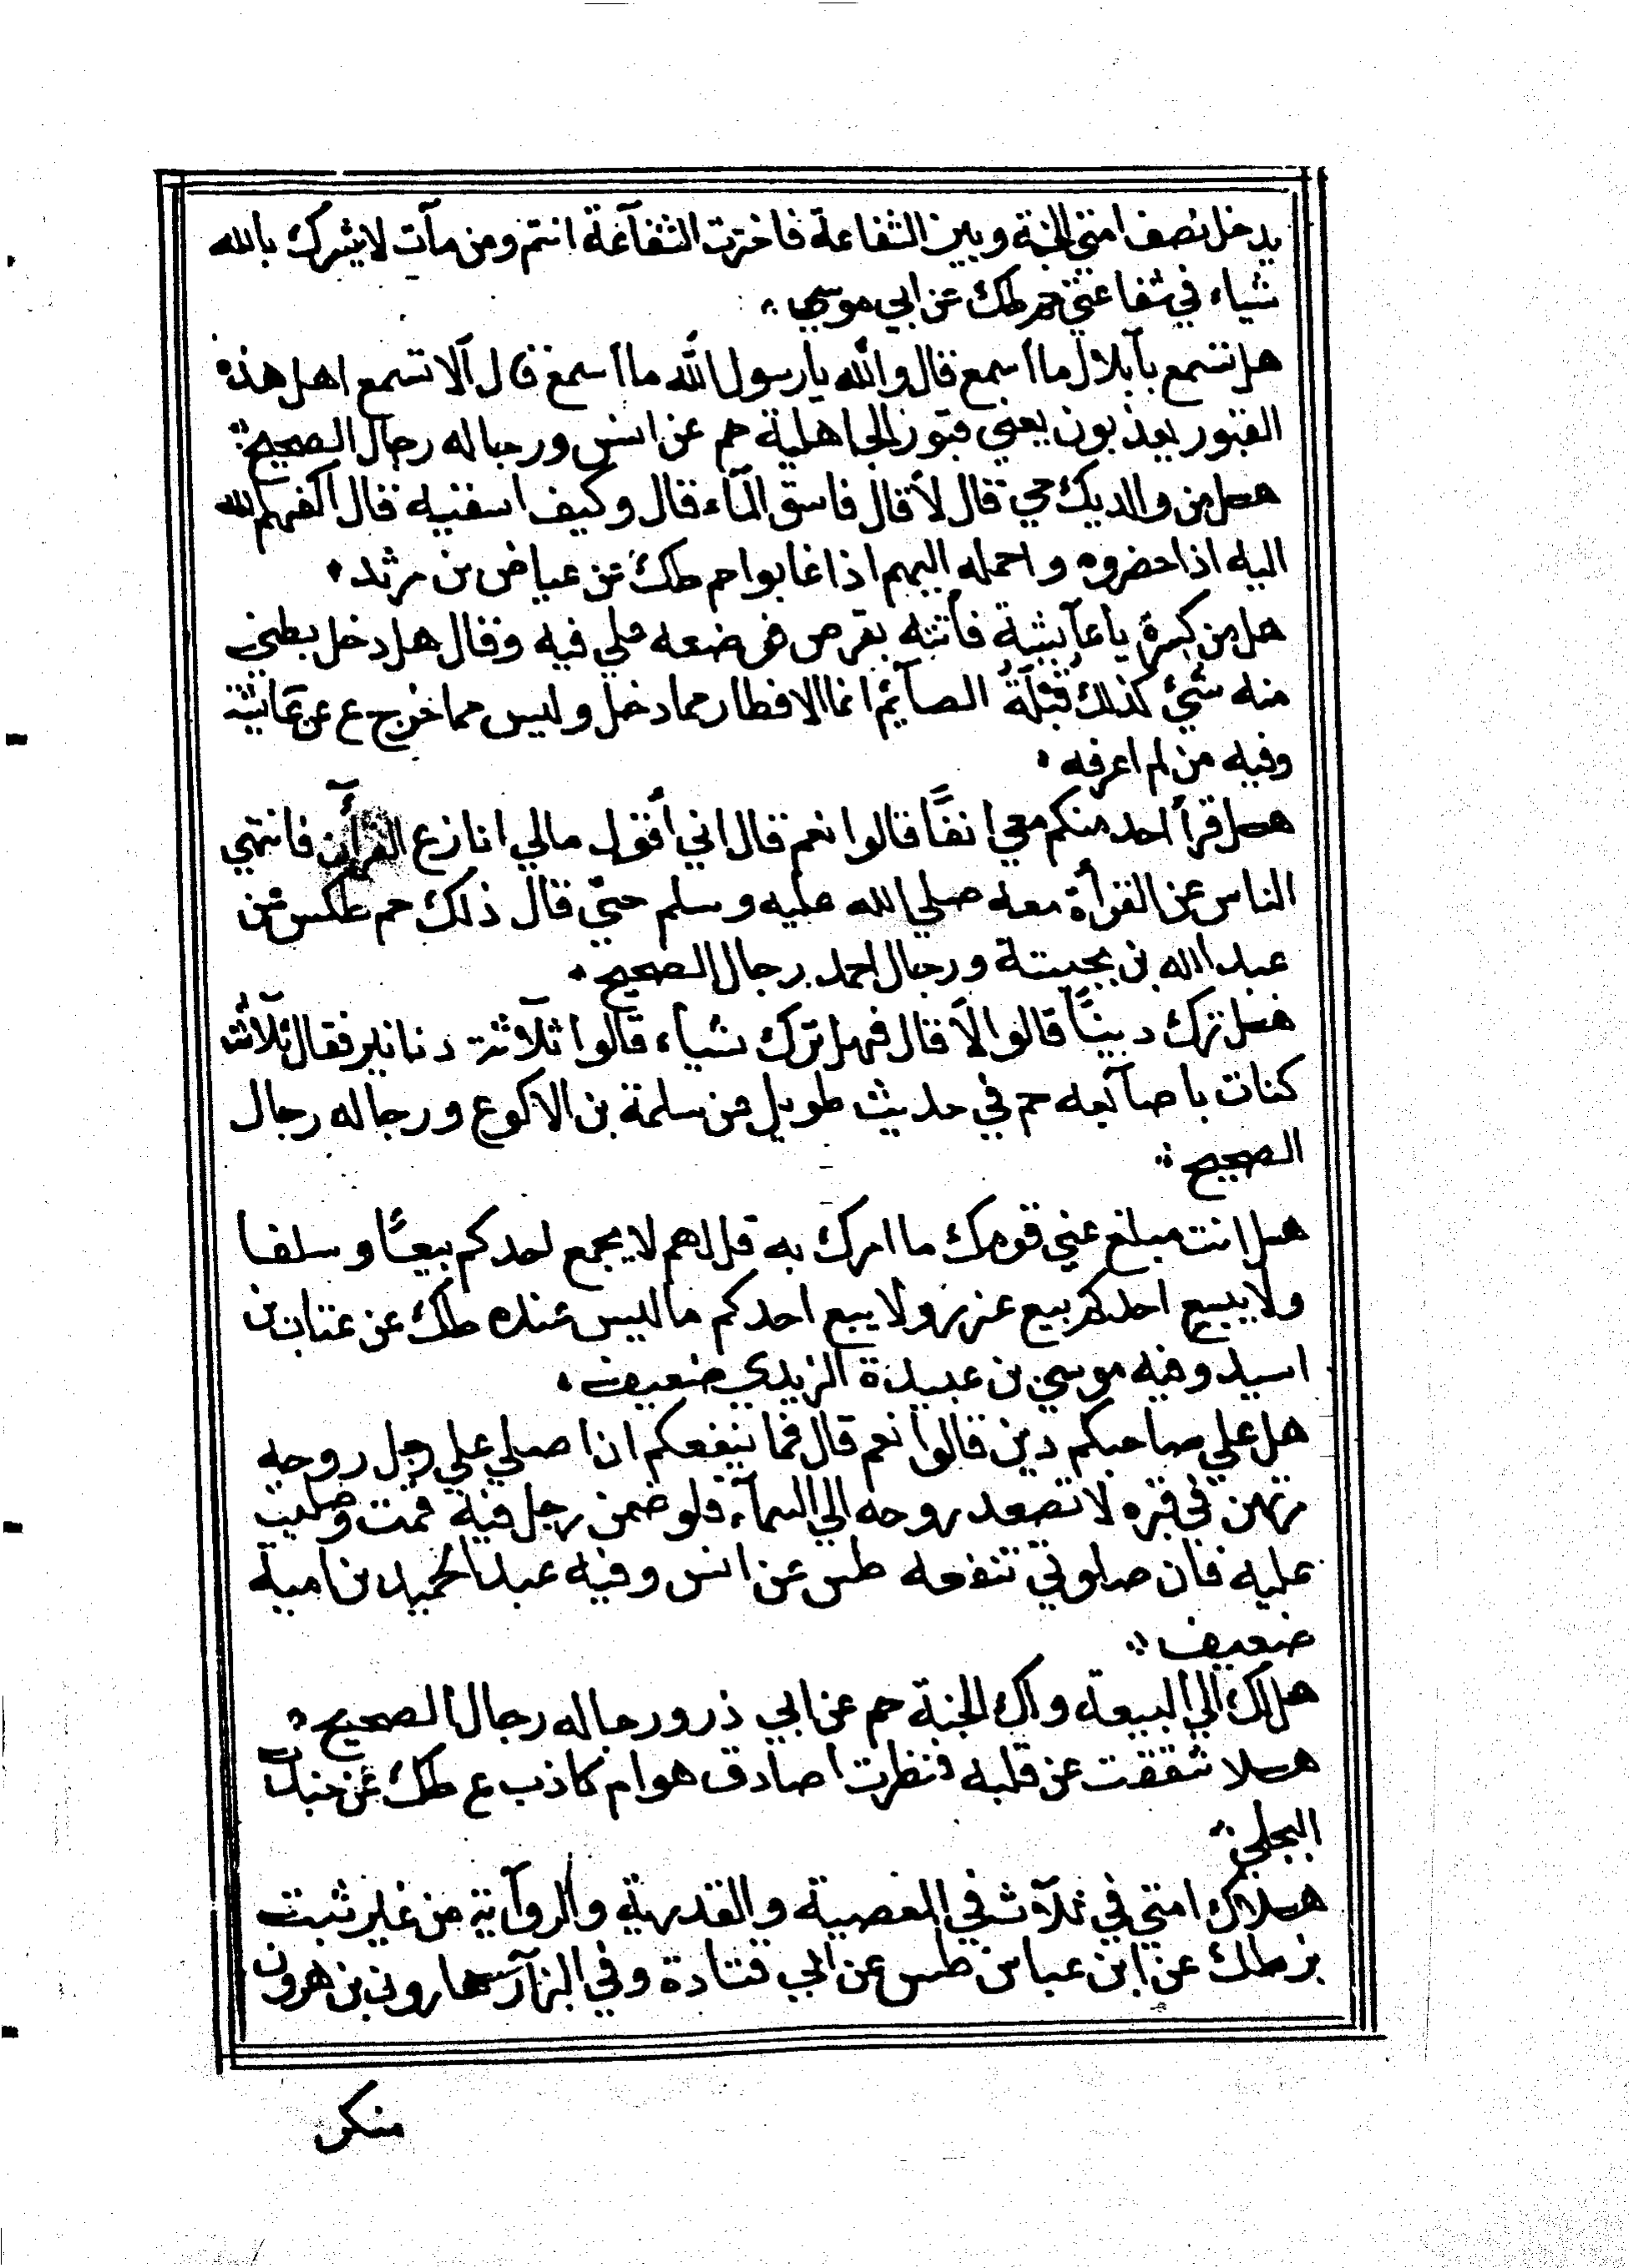 يدخل نصف امتي الجنة وبين الشفاعة فاخترت الشفاعة انتم ومن مآت لا يشرك بالله
شياء في شفاعتي حم طك عن ابي موسي
هل تسمع يا بلال ما اسمع قال والله يا رسول الله ما اسمع قال الا تسمع اهل هذه
القبور يعذبون يعني قبور الجاهلية حم عن انس ورجاله رجال الصحيح
هل من والديك حي قال لا قال فاسق المآء قال وكيف اسقيه قال اكفهم الله
اليه اذا حضروه واحمله اليهم اذا غابوا حم طك عن عياض بن مرثد
هل من كسرة يا عآيشة فأتته بقرص فوضعه علي فيه وقال هل دخل بطني
منه شئ كذلك قبلة الصآيم انما الافطار مما دخل وليس مما خرج ع عن عائشة
وفيه من لم اعرفه
هل قرأ احد منكم معي انفا قالوا نعم قال اني اقول مالي انازع القرآن فانتهي
الناس عن القرأة معه صلي الله عليه وسلم حتي قال ذلك حم طكس عن
عبد الله بن بحينة ورجال احمد رجال الصحيح
هل ترك دينًا قالوا لا قال فهل ترك شياء قالوا ثلآثة دنانير فقال ثلآث
كيات باصآبعه حم في حديث طويل عن سلمة بن الاكوع ورجاله رجال
الصحيح
هل انت مبلغ عني قومك ما امرك به قل لهم لا يجمع احدكم بيعًا وسلفا
ولا يبيع احدكم بيع غرر ولا يبع احدكم ما ليس عنده طك عن عتاب بن
اسيد وفيه موسي بن عبيدة الزيدي ضعيف
هل علي صاحبكم دين قالوا نعم قال فما ينفعكم اذا صلي علي رجل روحه
مرتهن في قبره لا تصعد روحه الي السمآء فلو ضمن رجل فيه قمت وصليت
عليه فان صلوتي تنفعه طس عن انس وفيه عبد الحميد بن امية
ضعيف
هل لك الي البيعة ولك الجنة حم عن ابي ذر ورجاله رجال الصحيح
هلا شققت عن قلبه فنظرت اصادق هو ام كاذب ع طك عن جندب
البجلي
هلاك امتي في ثلآث في العصبية والقدرية والروآية من غير ثبت
بز طك عن ابن عباس طس عن ابي قتادة وفي البزآر هارون بن هرون
منكر